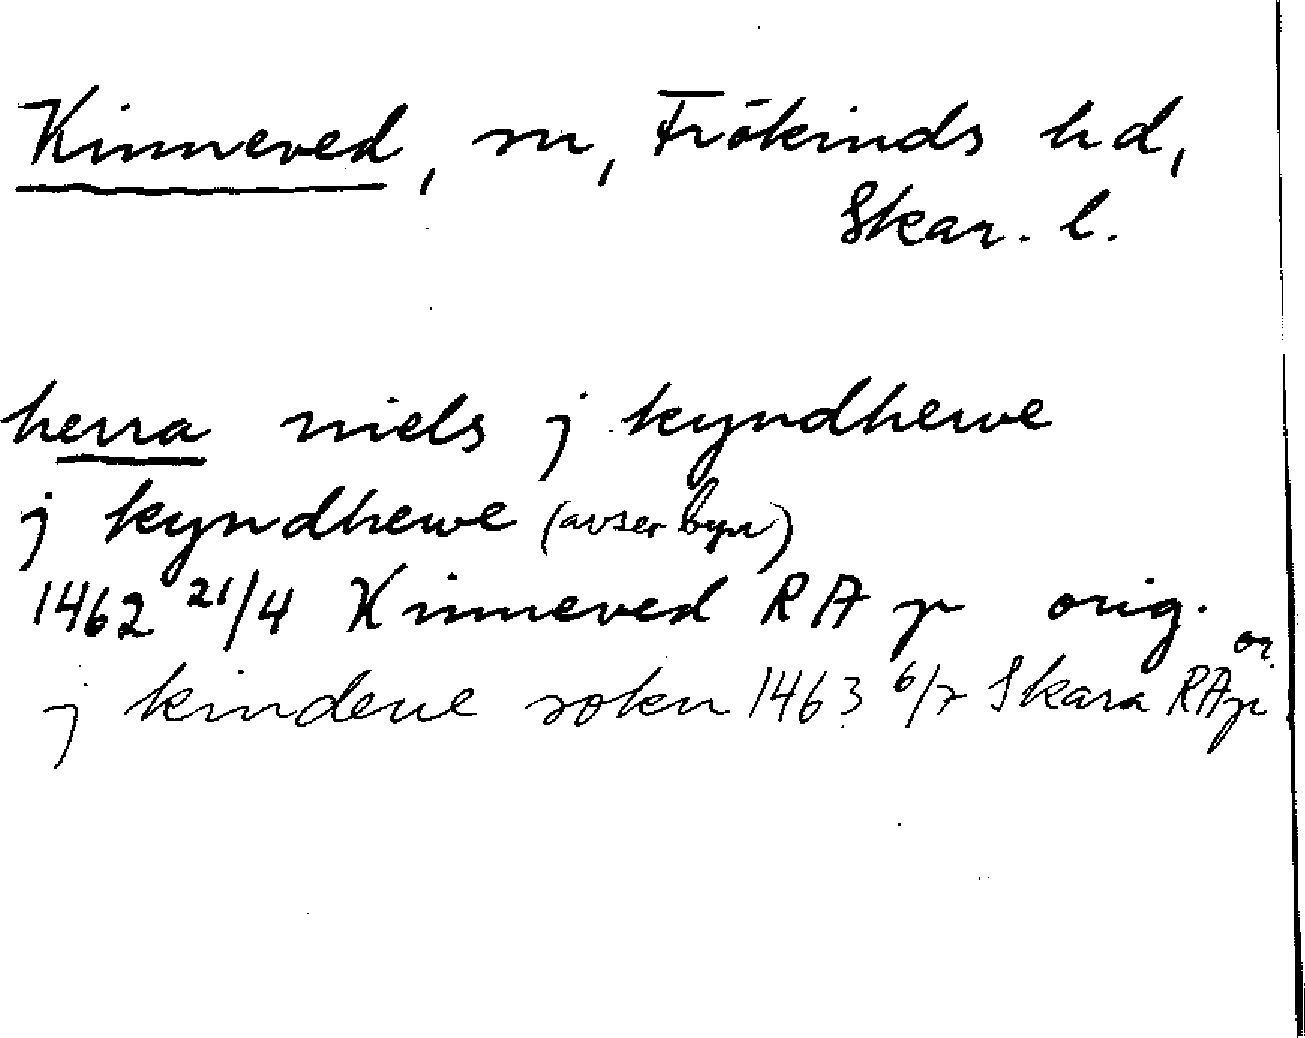 Kinneved, sn, Frökinds hd,
Skar. l.
herra niels j kyndhewe
j kyndhewe (avser byn)
1462 21/4 Kinneved RA p orig.
j kindeue sokn 1463 6/7 Skara RAp or.